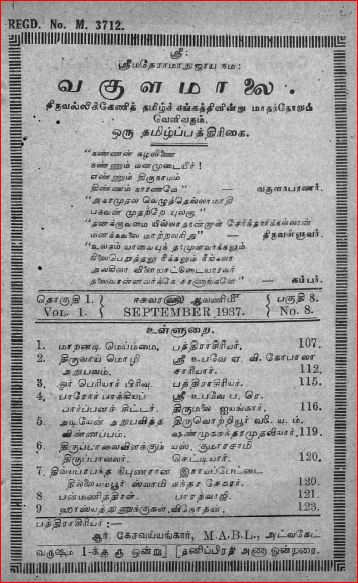 REGD. No. M. 3712.
ஸ்ரீ:
ஸ்ரீமதேராமாநுஜாய நம:
வகுளமாலை.
திருவல்லிக்கேணித் தமிழ்ச் சங்கத்தினின்று மாதந்தோறும்
வெளிவரும்
ஒரு தமிழ்ப்பத்திரிகை.
"கண்ணன் கழலிணை
நண்ணும் மனமுடையீர் !
எண்ணும் திருநாமம்
திண்ணம் நாரணமே" — வகுளாபரணர்.
"அகரமுதல வெழுத்தெல்லாமாதி
பகவன் முதற்றே யுலகு"
"தனக்குவமை யில்லாதான்றாள் சேர்ந்தார்க்கல்லான்
மனக்கவலை மாற்றலரிது" — திருவள்ளுவர்.
"உலகம் யாவையுந் தாமுளவாக்கலும்
நிலைபெறுத்தலு நீக்கலும் நீங்கலா
அலகிலா விளையாட்டுடையாரவர்
தலைவரன்னவர்க்கே சரணாங்களே" — கம்பர்.
தொகுதி 1. ஈசுவரஹு ஆவணிமீ பகுதி 8.
VOL. 1. SEPTEMBER 1937. No. 8.
உள்ளுறை.
1. மாறனடி மெய்ம்மை, பத்திராசிரியர். 107.
2. திருவாய் மொழி ஸ்ரீ உபவே ஏ. வி. கோபாலா
அநுபவம். சாரியார். 112.
3. ஓர் பெரியார் பிரிவு. பத்திராசிரியர். 115.
4. பாரோர் பாக்கியப் ஸ்ரீ உபவே ப. ரெ.
பார்ப்பனச் சிட்டர். திருமலை ஐயங்கார். 116.
5. அடியேன் அநுபவித்த திருவொற்றியூர் வயீ. ய. ம்.
விண்ணப்பம். ஷண்முகசுந்தரமுதலியார். 119.
6. திருப்பாலைவிளக்கும் யஸ். குமாரசாமி
திருப்பாவலர். செட்டியார். 120.
7. திவ்யப்ரபந்த நிபுணரான இசாயப்பேட்டை
தில்லையம்பூர் ஸ்வாமி சுந்தர சேகரர். 120.
8 பன்மணித்திரள். பாரத்வாஜி. 121.
9 ஹாஸ்யத்துணுக்குகள். விநோதன். 123.
பத்திராசிரியர் :—
ஆர். கேசவய்யங்கார், M.A.B.L., அட்வகேட்
வருஷம் 1-க்கு ரூ ஒன்று] [தனிப்பிரதி அணா ஒன்றரை.